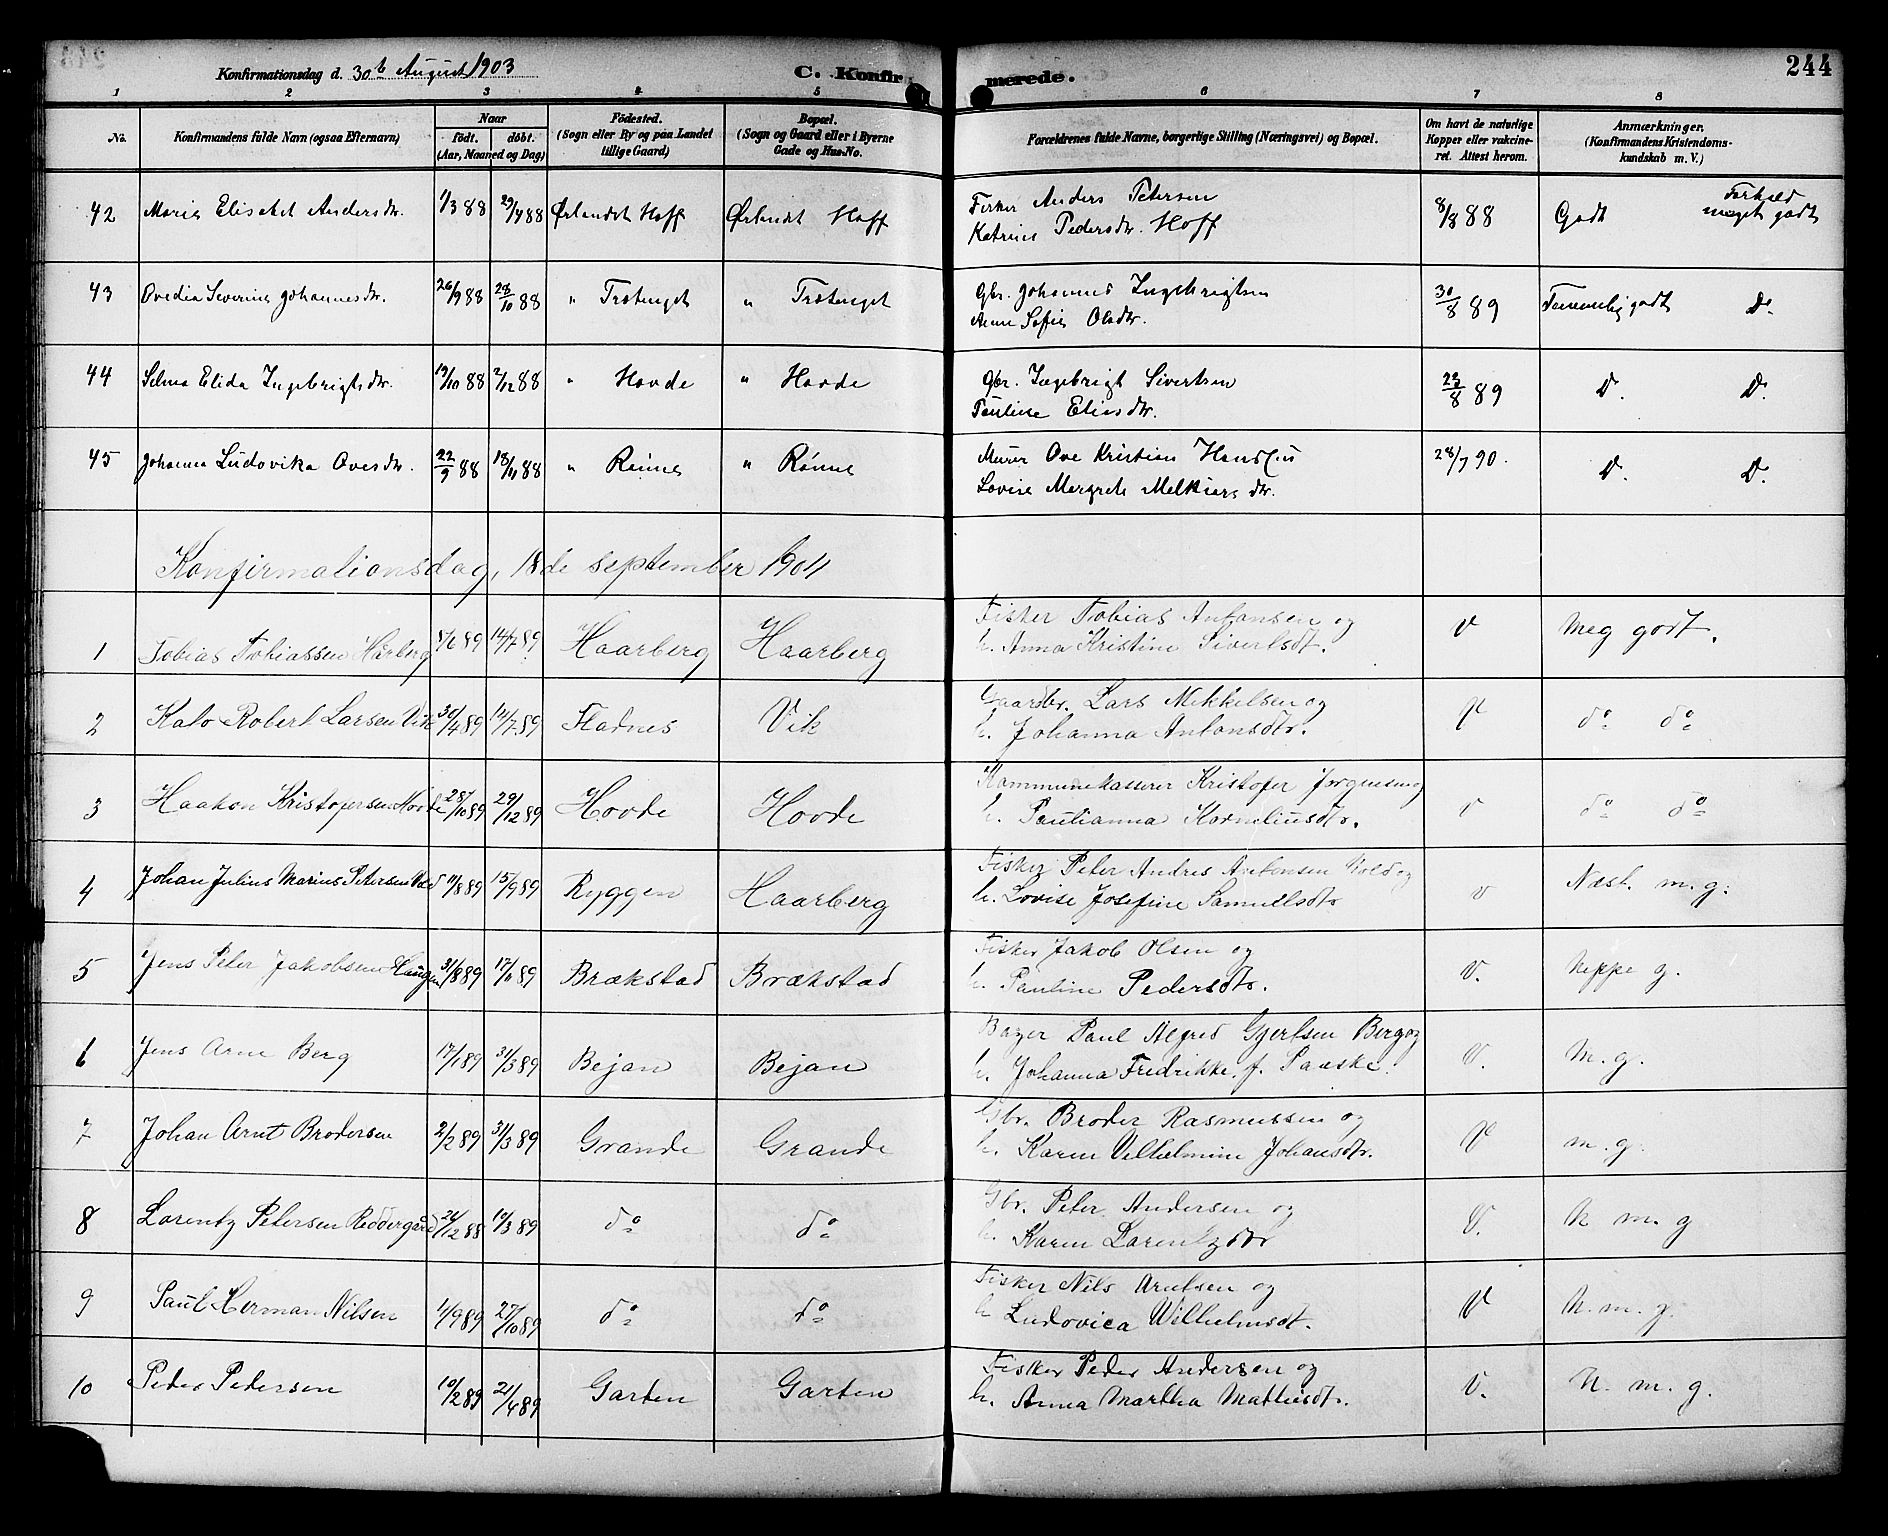 Konfirmationsdag d. 30te August 1903 C. Konfirmerede. 244
1 2 3 4 5 6 7 8
No. Konfirmandens fulde Navn (ogsaa Efternavn) Naar født. døbt. (Aar, Maaned og Dag) Fødested. (Sogn eller By og paa Landet tillige Gaard) Bopæl. (Sogn og Gaard eller i Byerne Gade og Hus-No. Forældrenes fulde Navne, borgerlige Stilling (Næringsvei) og Bopæl. Om havt de naturlige Kopper eller vakcineret. Attest herom. Anmærkninger. (Konfirmandens Kristendomskundskab m. V.)
42 Marie Elisabet Andersdtr. 1/3 88 29/4 88 Ørlandet Hoff Ørlandet Hoff Fisker Anders Petersen 8/8 88 Godt Forhold meget godt
Katrine Pedersdtr. Hoff
43 Ovedia Severine Johannesdtr. 26/9 88 28/10 88 " Trætenget " Trætenget Gbr. Johannes Ingebrigtsen 30/8 89 Temmelig godt Do.
Anne Sofie Olsdtr.
44 Selma Elida Ingebrigtsdtr. 19/10 88 2/12 88 " Hovde " Hovde Gbr. Ingebrigt Sivertsen 22/8 89 Do. Do.
Pauline Eliasdtr.
45 Johanna Ludovika Ovesdtr. 22/9 88 18/11 88 " Rønne " Rønne Murer Ove Kristian Hansen 28/7 90. Do. Do.
Lovise Margrete Melkiorsdtr.
Konfirmationsdag, 18de september 1904
1 Tobias Tobiassen Harberg 5/6 89 14/7 89 Haarberg Haarberg Fisker Tobias Antonsen og V Meg godt.
h. Anna Kristine Sivertsdt.
2 Kalo Robert Larsen Vik 30/4 89 14/7 89 Fladnes Vik Gaardbr. Lars Mikkelsen og V do do
h. Johanna Antonsdtr.
3 Haakon Kristofersen Hovde 28/10 89 29/12 89 Hovde Hovde Kommunekasserer Kristofer Jørgensen og V do do
h. Paulianna Korneliusdtr.
4 Johan Julius Marius Petersen 11/8 89 15/9 89 Ryggen Haarberg Fisker Peter Andres Antonsen og V Næst. m. g.
h. Lovise Josefine Samuelsdtr
5 Jens Peter Jakobsen Haugen 31/8 89 17/11 89 Brækstad Brækstad Fisker Jakob Olsen og V. neppe g.
h. Pauline Pedersdtr.
6 Jens Arne Berg 17/1 89 31/3 89 Bejan Bejan Bager Paul Alfred Gjertsen Berg og V. M. g.
h. Johanna Fredrikke f. Pauske.
7 Johan Arnt Brodersen 2/2 89 31/3 89 Grande Grande Gbr. Broder Rasmussen og V m. g.
h. Karen Vilhelmine Johansdtr.
8 Lorentz Petersen Reddergård 26/12 88 10/3 89 do do Gbr. Peter Andersen og V. N m. g
h. Karen Larentzdtr
9 Paul Herman Nilsen 1/9 89 27/10 89 do do Fisker Nils Arntsen og V N. m. g.
h. Ludovica Wilhelmsdt.
10 Peder Pedersen 10/2 89 21/4 89 Garten Garten Fisker Peder Andersen og V. N. m. g.
h. Anna Martha Mathisdtr.